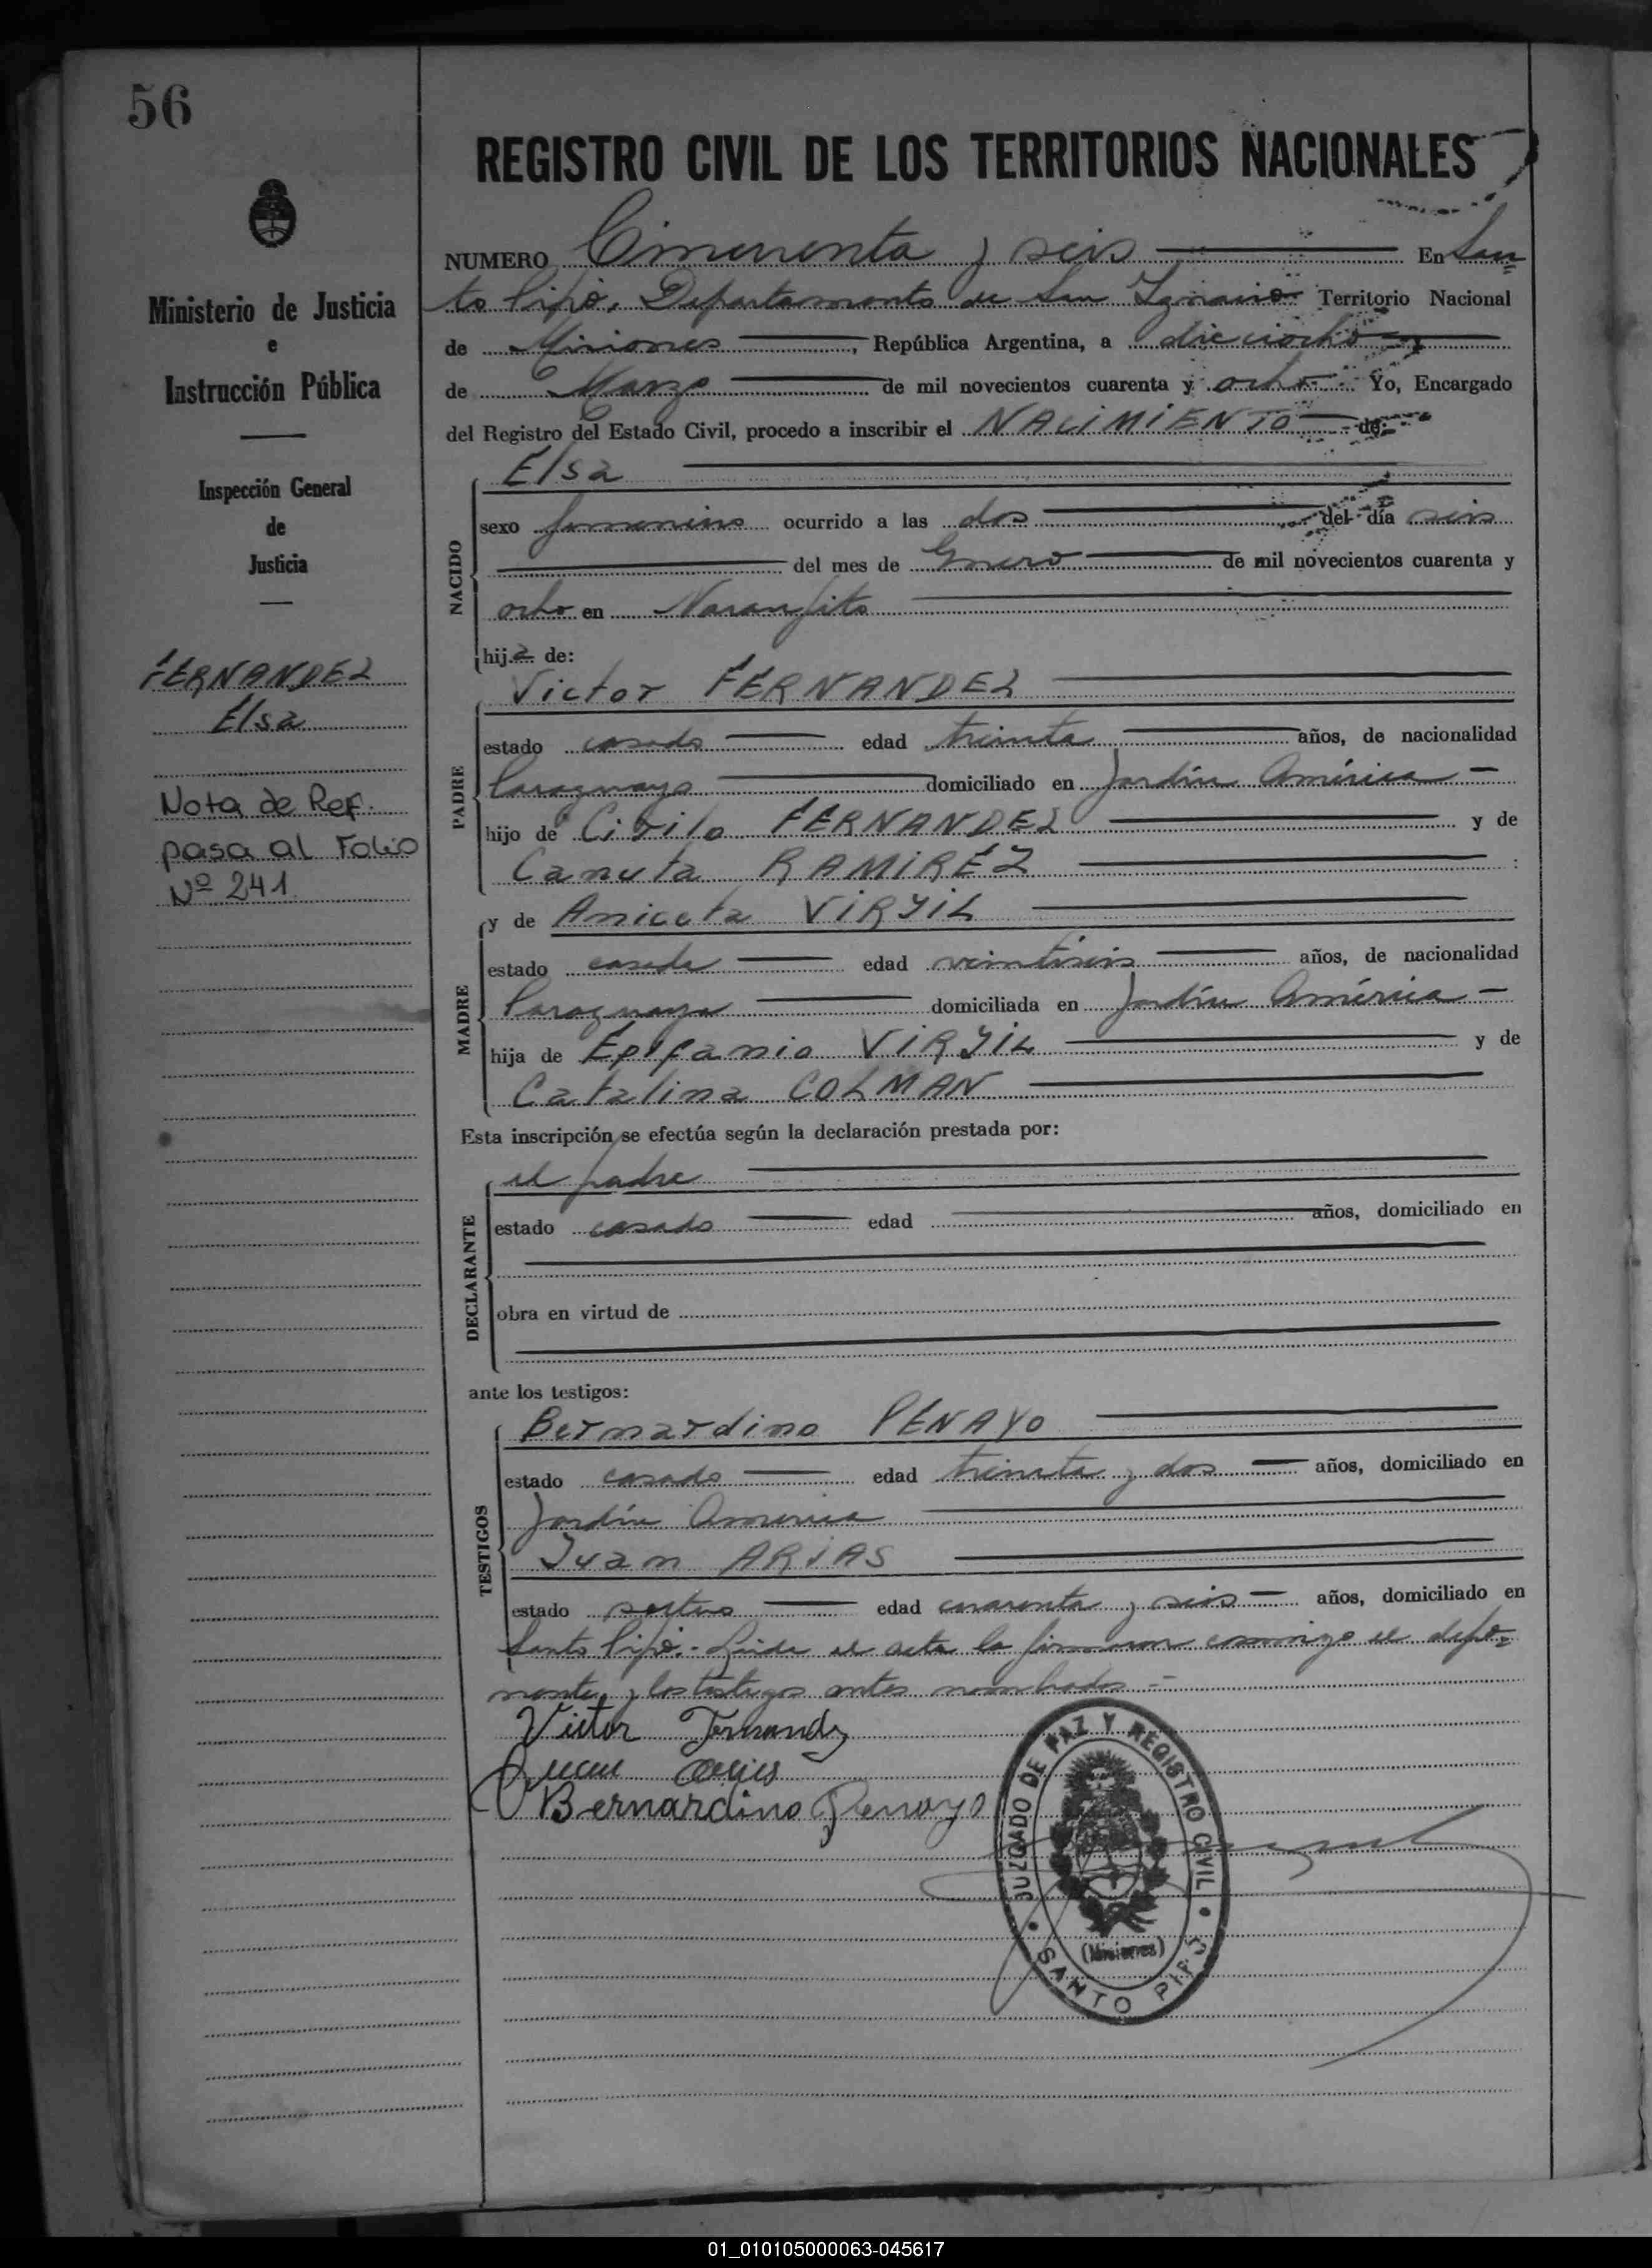 56
Ministerio de Justicia
e
Instrucción Pública
Inspección General
de
Justicia
FERNANDEZ
Elsa
Nota de Ref.
pasa al Folio
Nº 241
REGISTRO CIVIL DE LOS TERRITORIOS NACIONALES
NUMERO Cincuenta y seis En San=
to Pipó. Departamento de San Ignacio Territorio Nacional
de Misiones, República Argentina, a dieciocho
de Marzo de mil novecientos cuarenta y ocho. Yo, Encargado
del Registro del Estado Civil, procedo a inscribir el NACIMIENTO de:
NACIDO
Elsa
sexo femenino ocurrido a las dos del día seis
del mes de Enero de mil novecientos cuarenta y
ocho en Naranjito
hija de:
PADRE
Victor FERNANDEZ
estado casado edad treinta años, de nacionalidad
Paraguayo domiciliado en Jardín América
hijo de Cirilo FERNANDEZ y de
Canuta RAMIREZ
MADRE
y de Aniceta VIRJIL
estado casada edad veintiseis años, de nacionalidad
Paraguaya domiciliada en Jardín América
hija de Epifanio VIRJIL y de
Catalina COLMAN
Esta inscripción se efectúa según la declaración prestada por:
DECLARANTE
el padre
estado casado edad años, domiciliado en
obra en virtud de
ante los testigos:
TESTIGOS
Bernardino PENAYO
estado casado edad treinta y dos años, domiciliado en
Jardín America
Juan ARIAS
estado soltero edad cuarenta y seis años, domiciliado en
Santo Pipó.- Leida el acta la firmaron conmigo el depo=
nente y los testigos antes nombrados.-
Victor Fernandz
Bernardino Penayo
JUZGADO DE PAZ Y REGISTRO CIVIL
(Misiones)
SANTO PIPÓ
01_010105000063-045617